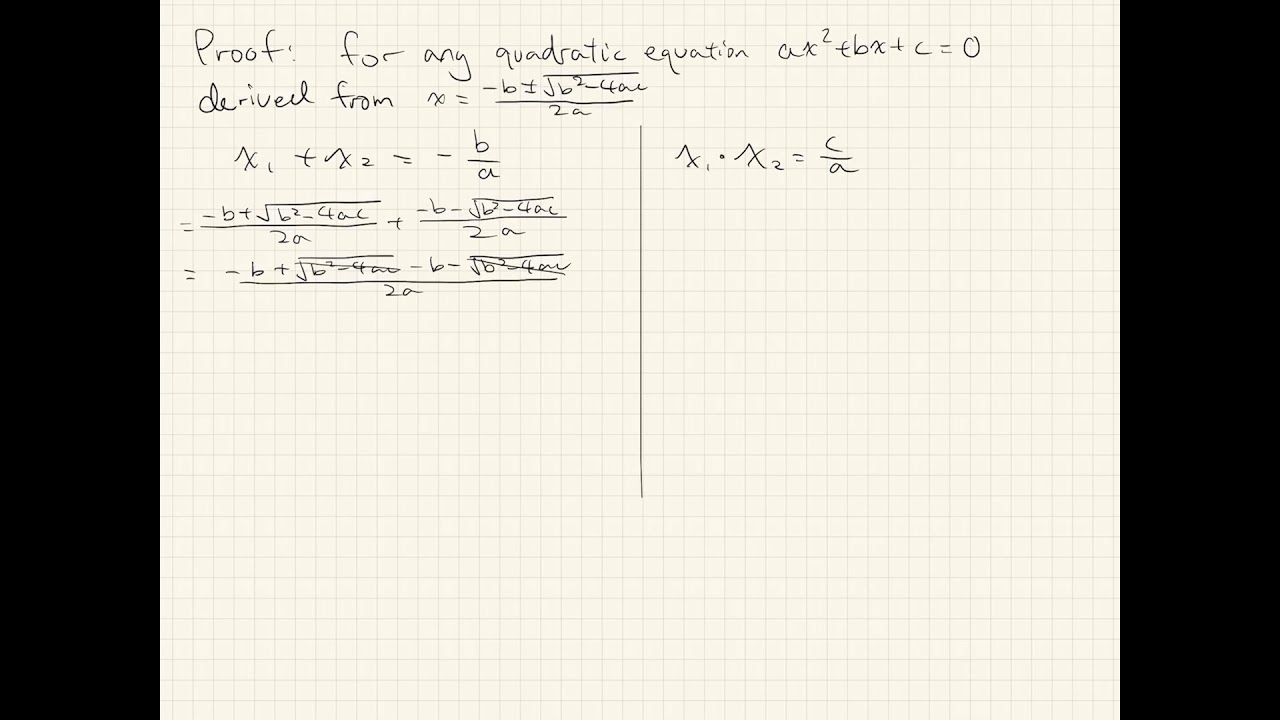 Proof: for any quadratic equation ax²+bx+c=0
derived from x = (-b±√(b²-4ac))/(2a)
x₁ + x₂ = -b/a
= (-b+√(b²-4ac))/(2a) + (-b-√(b²-4ac))/(2a)
= (-b+√(b²-4ac) -b-√(b²-4ac))/(2a)
x₁·x₂ = c/a